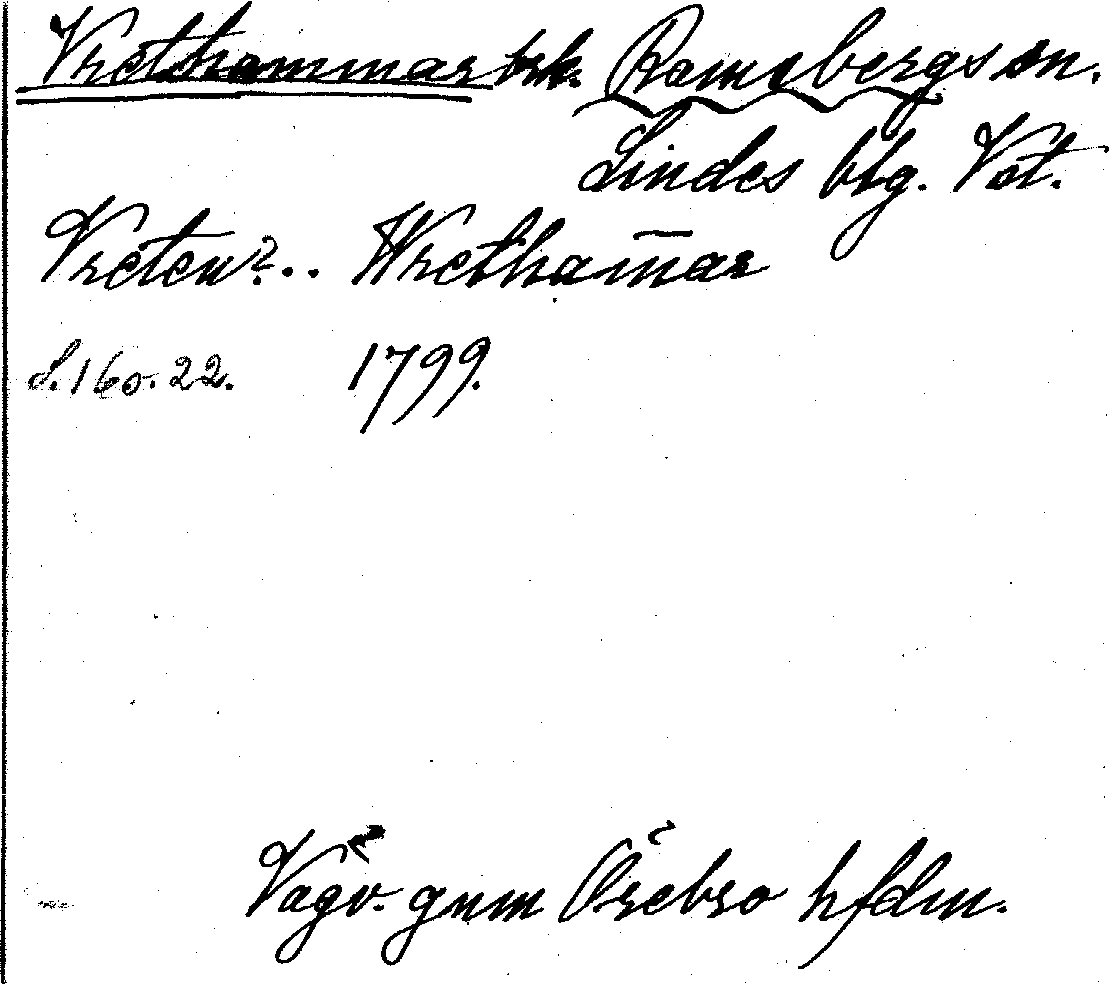 Vrethammar brk. Ramsbergs sn.
Lindes blg. Vst.
Vreten?.. Wretham̅ar
S. 160. 22. 1799.
Vägv. gnm Örebro hfdm.